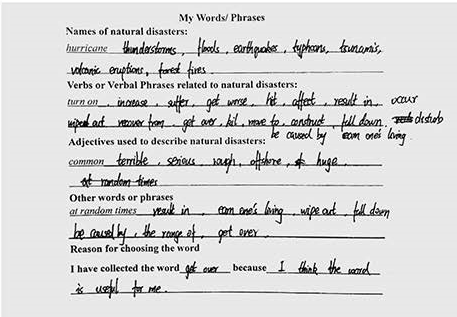 My Words/ Phrases
Names of natural disasters:
hurricane thunderstorms, floods, earthquakes, typhoons, tsunamis,
volcanic eruptions, forest fires
Verbs or Verbal Phrases related to natural disasters:
turn on, increase, suffer, get worse, hit, affect, result in, occur
wiped out recover from, got over, kil, move to, construct, fall down, disturb
be caused by earn one's living.
Adjectives used to describe natural disasters:
common terrible, serious, rough, offshore, huge
at random times
Other words or phrases
at random times result in, earn one's living, wipe out, fall down
be caused by, the range of, get over.
Reason for choosing the word
I have collected the word get over because I think the word
is useful for me.